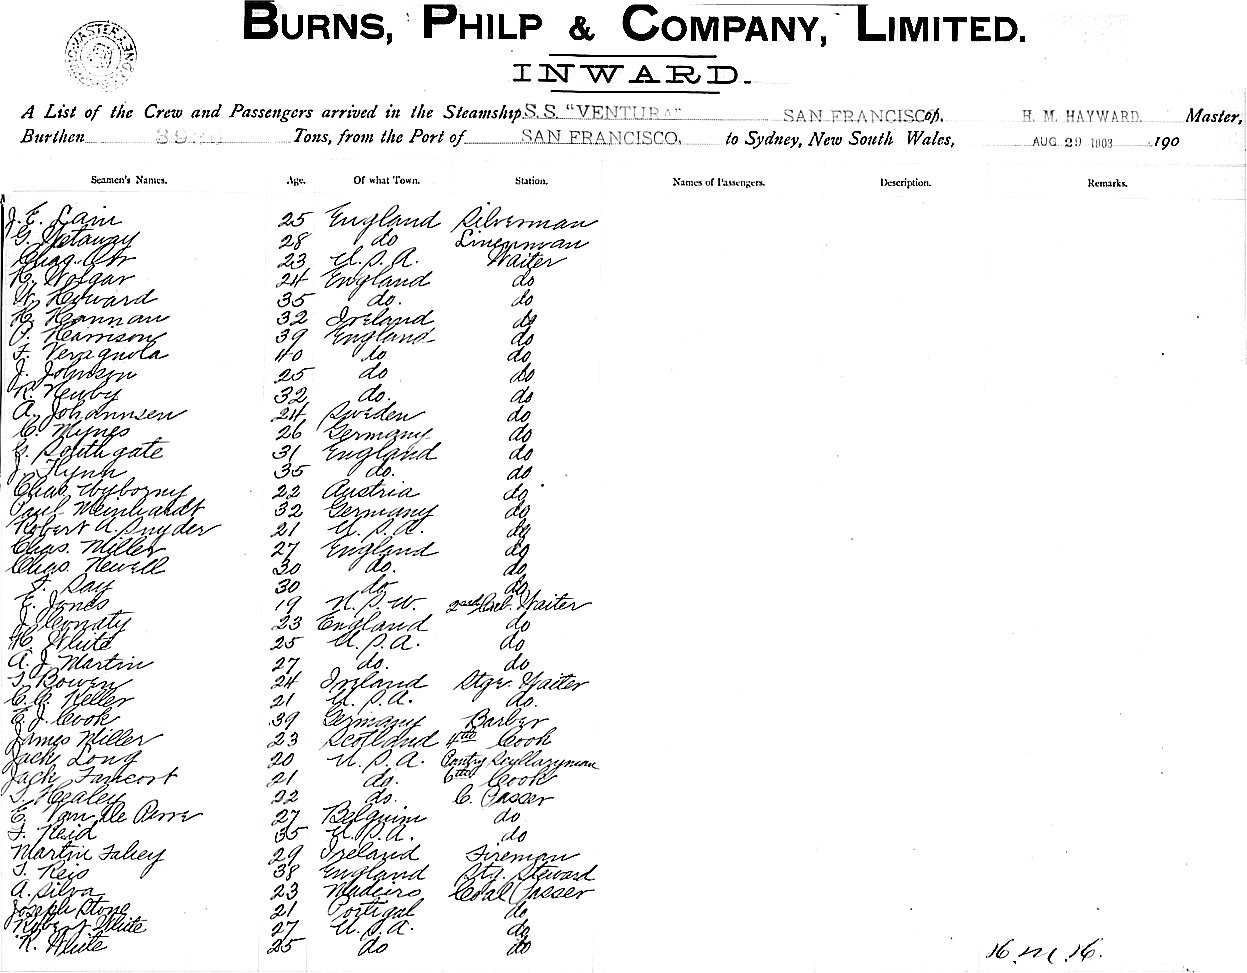 BURNS, PHILP & COMPANY, LIMITED.
INWARD.
A List of the Crew and Passengers arrived in the Steamship S.S. "VENTURA" SAN FRANCISCO of, H. M. HAYWARD. Master,
Burthen Tons, from the Port of SAN FRANCISCO, to Sydney, New South Wales, AUG 29 1903 190
Seamen's Names. Age. Of what Town. Station. Names of Passengers. Description. Remarks.
J. E. Lain 25 England Silverman
G. Hetaway 28 do Linenman
Chas. Orr 23 U.S.A. Waiter
G. Wolgar 24 England do
W. Heyward 35 do. do
H. Hannan 32 Ireland do
P. Harrison 39 England do
F. Veragnola 40 do do
J. Johnson 25 do do
R. Newby 32 do. do
A. Johannsen 24 Sweden do
C. Mynes 26 Germany do
G. Southgate 31 England do
J. Flynn 35 do. do
Chas. Wyborny 22 Austria do
Paul Meinhardt 32 Germany do
Robert A. Snyder 21 U.S.A. do
Chas. Miller 27 England do
Chas. Newell 30 do. do
F. Day 30 do do
E. Jones 19 N.S.W. 2nd Cab. Waiter
J. Conaty 23 England do
H. White 25 U.S.A. do
A. J. Martin 27 do. do
T. Bowen 24 Ireland Stge. Waiter
C. C. Keller 21 U.S.A. do.
E. J. Cook 39 Germany Barber
James Miller 23 Scotland 4th Cook
Jack Long 20 U.S.A. Pantry
Jack Fancort 21 do. 6th Cook
T. Healey 22 do. C. Passer
E. Van De Perre 27 Belguim do
F. Reid 35 U.S.A. do
Martin Fahey 29 Ireland Fireman
T. Reis 38 England Stg. Steward
A. Silva 23 Madeiro Coal Passer
Joseph Stone 21 Portigal do
Robert White 27 U.S.A. do
R. White 25 do do
H.M.H.